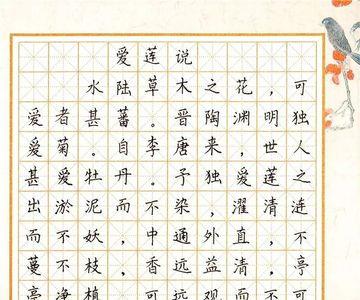 爱莲说
水陆草木之花，可
爱者甚蕃。晋陶渊明独
爱菊。自李唐来，世人
甚爱牡丹。予独爱莲之
出淤泥而不染，濯清涟
而不妖，中通外直，不
蔓不枝，香远益清，亭
亭净植，可远观而不可